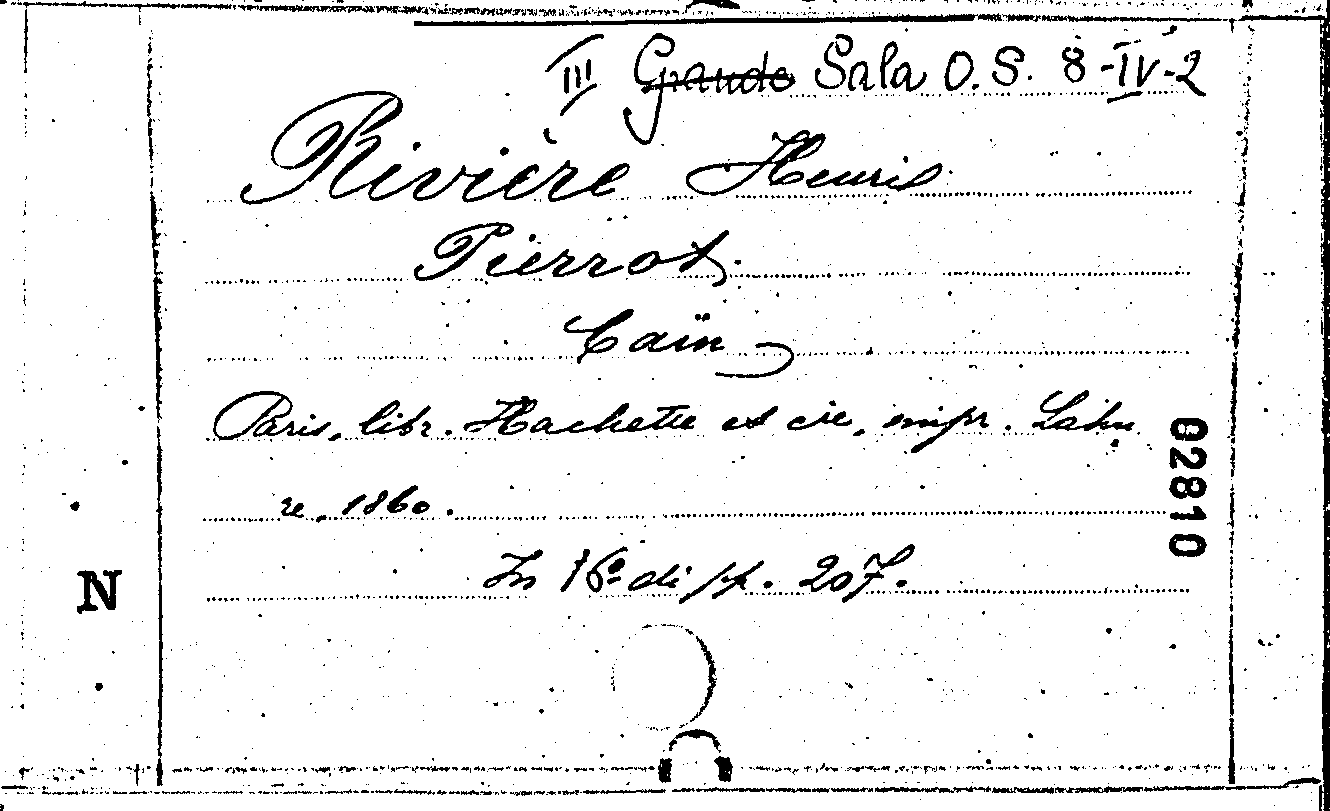 III Grande Sala O.S. 8-IV-2
Rivière Henri
Pierrot.
Caïn
Paris, libr. Hachette et cie, impr. Lahu
re, 1860.
In 16º di pp. 207.
02810
N